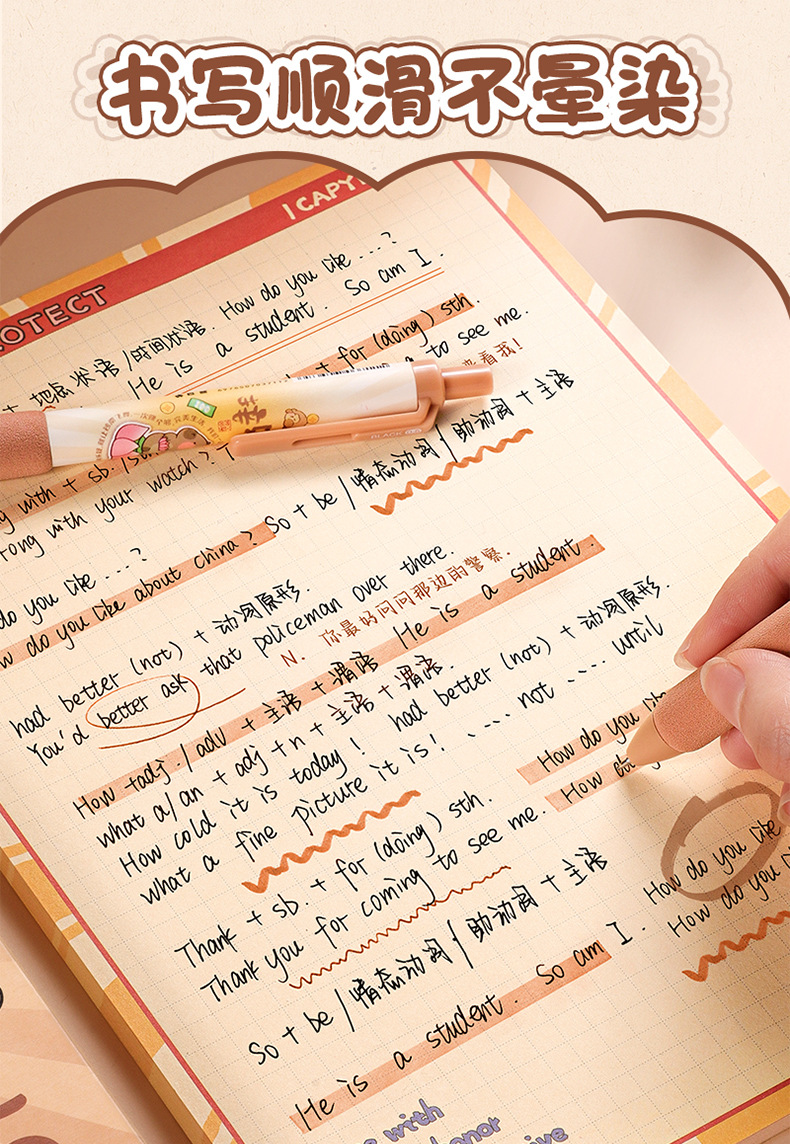 书写顺滑不晕染
I CAPY
OTECT
How do you like ...?
地点状语/时间状语. He is a student. So am I.
+ for (doing) sth.
to see me.
来看我!
BLACK
with + sb.
rong with your watch?
So + be / 情态动词 / 助动词 + 主语
do you like ...?
w do you like about china?
had better (not) + 动词原形.
You'd better ask that policeman over there.
N. 你最好问问那边的警察.
How +adj. / adv + 主语 + 谓语 He is a student.
what a/an + adj + n + 主语 + 谓语.
How cold it is today! had better (not) + 动词原形.
what a fine picture it is! .... not .... until
How do you like
How do
Thank + sb. + for (doing) sth.
Thank you for coming to see me.
So + be / 情态动词 / 助动词 + 主语
He is a student. So am I.
How do you like
How do you
with